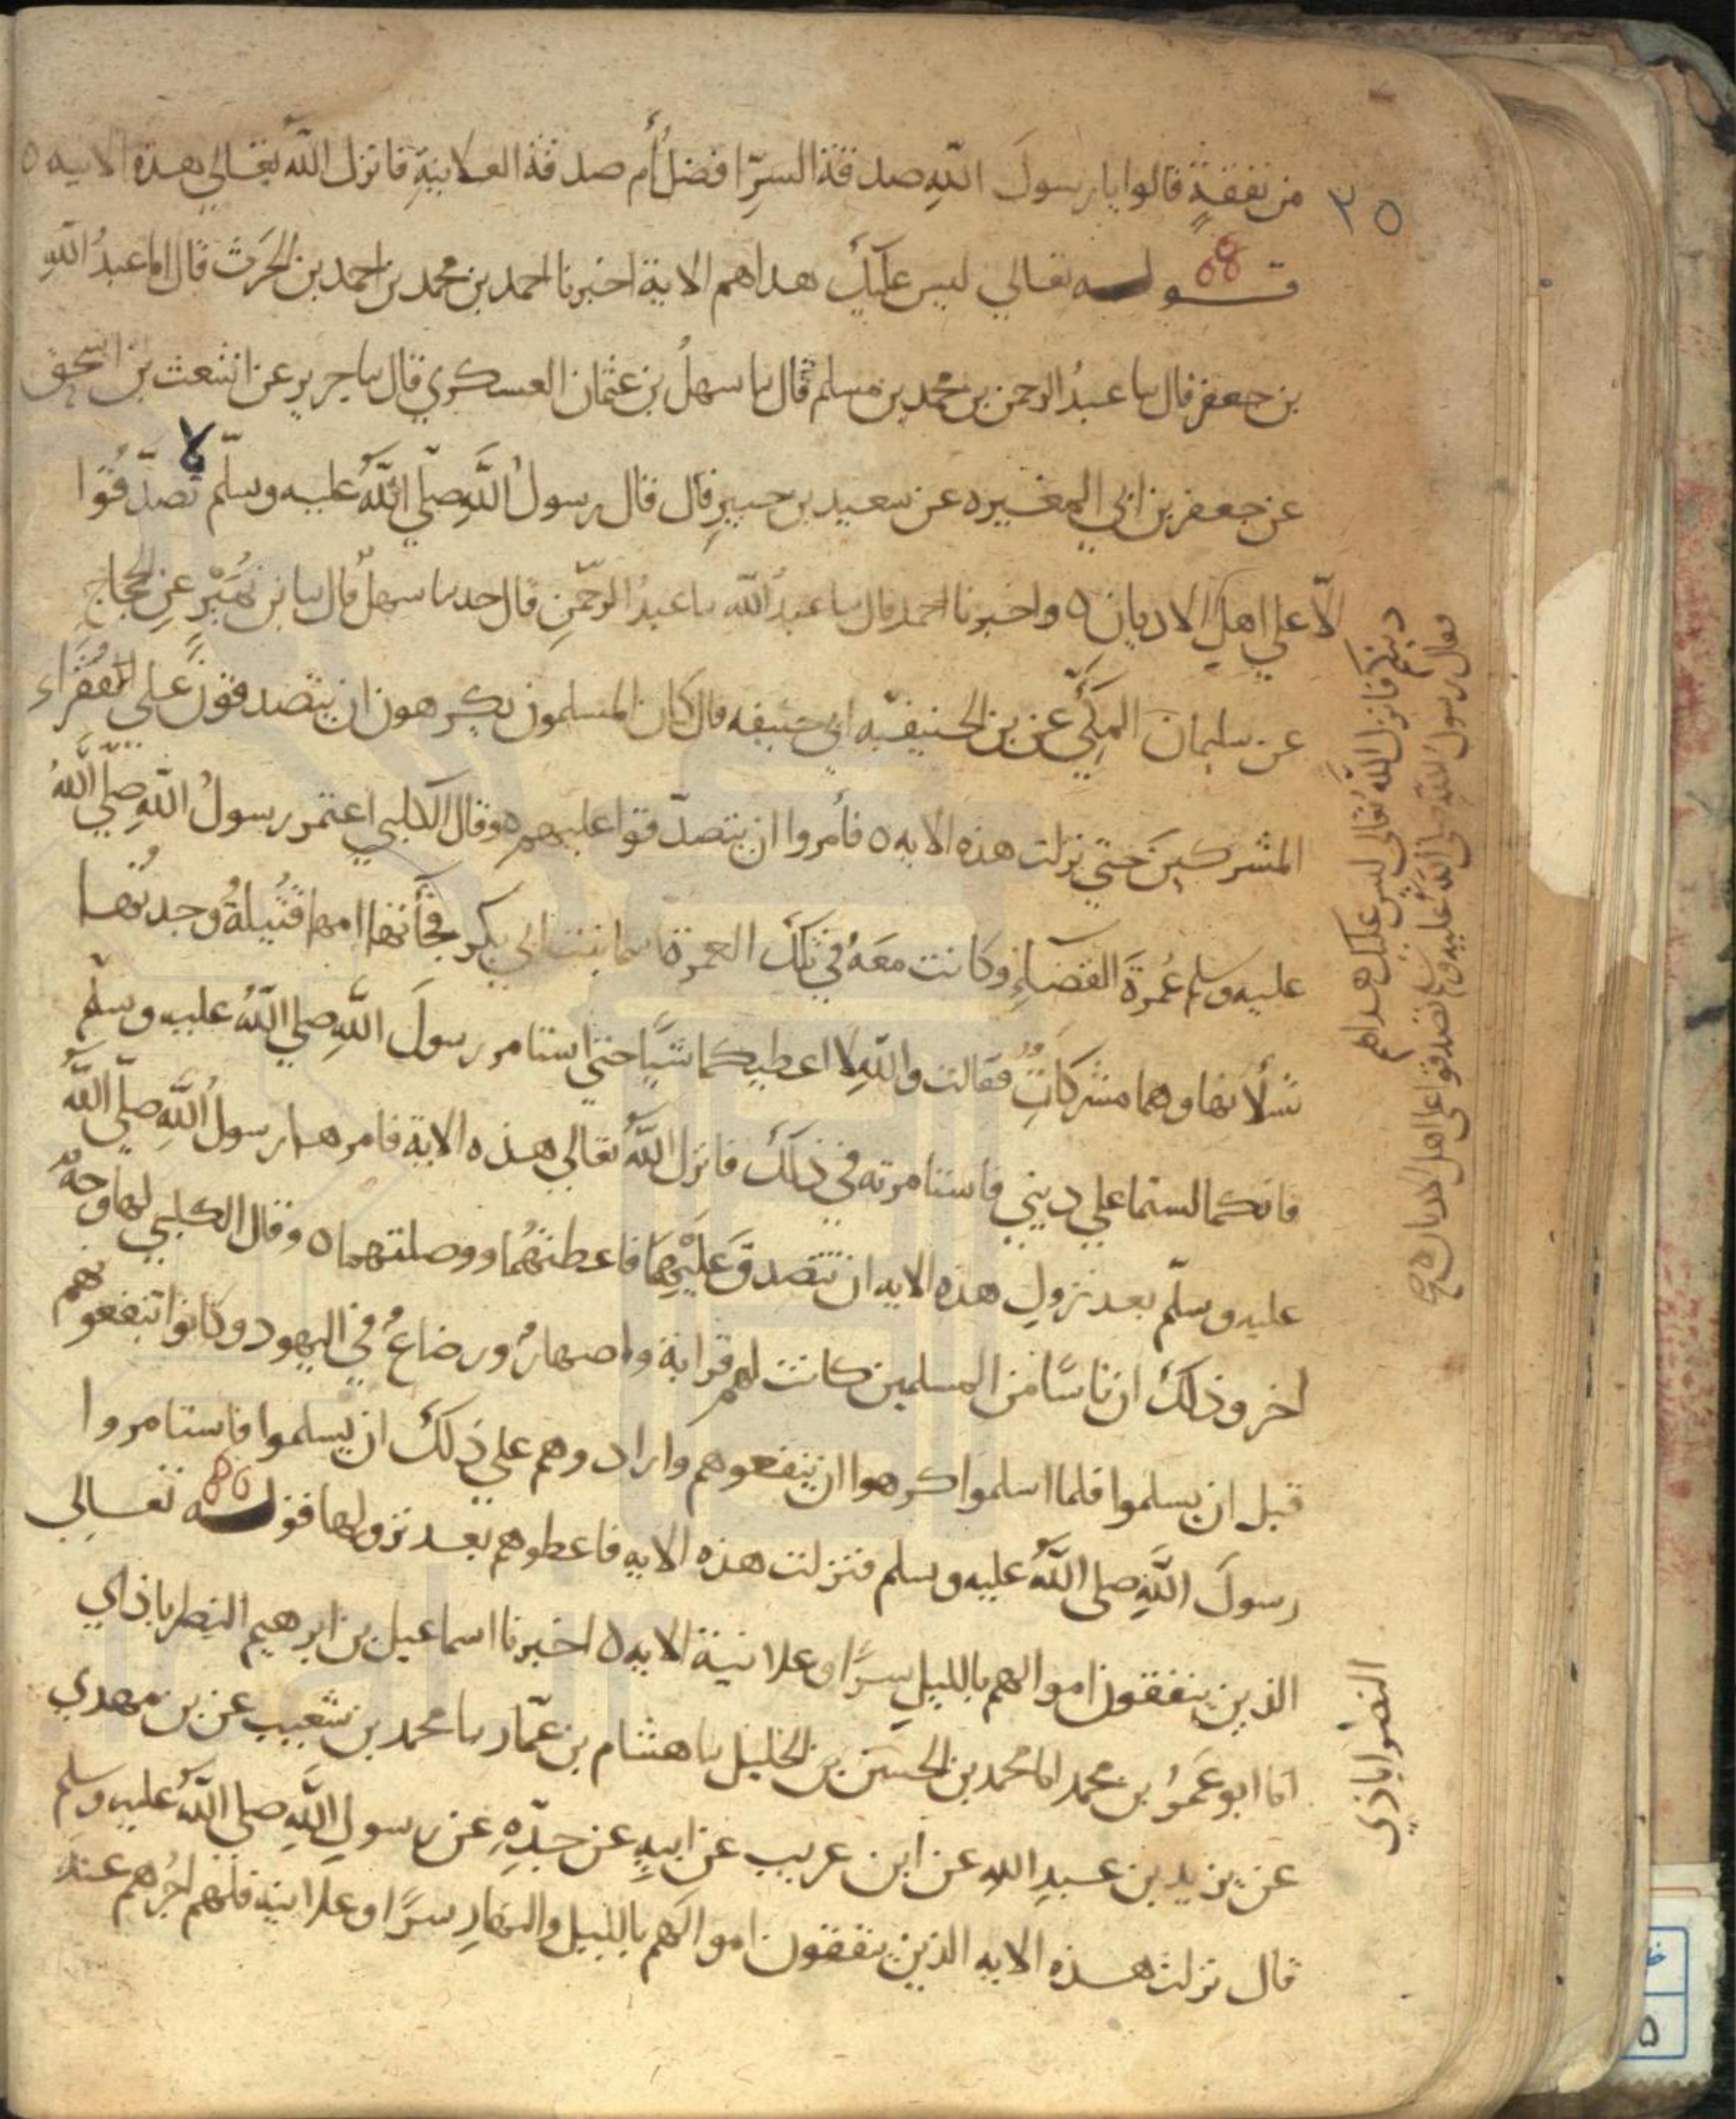 من نفقةٍ قالوا يا رسولَ اللهِ صدقة السرِّ افضلُ أم صدقة العلانيةِ فانزل اللهُ تعالى هذه الايه ه
٣٥
قوله تعالي ليس عليك هداهم الاية اخبرنا احمد بن محمد بن احمد بن الحَرَث قال انا عبدُ اللهِ
بن جعفر قال نا عبدُ الرحمن بن محمد بن مسلم قال نا سهلُ بن عثمان العسكري قال نا جرير عن اشعث بن اسحق
عن جعفر بن ابي المغيره عن سعيد بن جبيرٍ قال قال رسولُ اللهِ صلّي اللهُ عليه وسلّم لا تصدّقُوا
الّا علي اهلِ الاديان ه واخبرنا احمد قال نا عبدُ الله نا عبدُ الرحمنِ قال حدنا سهلٌ قال نا بن نُمَيْرٍ عنِ الحجاجِ
عن سليمانَ المكِّيّ عن بن الحنيفيّه ابي حنيفه قال كان المسلمون يكرهون ان يتصدقونَ علي الفُقَرَاءِ
المشركينَ حتي نزلت هذه الايه ه فأمروا ان يتصدّقوا عليهم ه وقال الكلبي اعتمر رسولُ اللهِ صلّي اللهُ
عليه وسلم عُمرةَ القضاءِ وكانت معَهُ في تلك العمرة اسما بنت ابي بكر فجأتها امها قتيلةُ وجدتُها
تسألانها وهما مشركاتٌ فقالت واللهِ لا اعطيكما شيًا حتي استامر رسولَ اللهِ صلي اللهُ عليه وسلّم
فانكما لستما علي ديني فاستامرته في ذلك فانزل اللهُ تعالي هذه الاية فامرهما رسولُ اللهِ صلّي اللهُ
عليه وسلّم بعد نزولِ هذه الايه ان تتصدق عَليْهِمَا فاعطتهُما ووصلتهما ه وقال الكلبي لها وجهٌ
اخر وذلك ان ناسًا من المسلمين كانت لهم قرابة واصهارٌ ورضاعٌ في اليهود وكانوا ينفعونهم
قبل ان يسلموا فلما اسلموا كرهوا ان ينفعوهم وارادوهم علي ذلك ان يسلموا فاستامروا
رسولَ اللهِ صلي اللهُ عليه وسلم فنزلت هذه الايه فاعطوهم بعد نزولها قوله تعالِي
الذين ينفقون اموالهم بالليلِ سرًّا وعلانية الايه ه اخبرنا اسماعيل بن ابرهيم النصرباذاي
انا ابو عَمرُو بن محمد انا محمد بن الحسَين بن الخليل نا هشام بن عمّار نا محمد بن شعيب عن بن مهدي
عن يزيد بن عبدِ اللهِ عن ابن عريب عن ابيهِ عن جدّهِ عن رسولِ اللهِ صلي اللهُ عليه وسلم
قال نزلت هذه الايه الذين ينفقون اموالهم بالليل والنهارِ سرًّا وعلانيه فلهم اجرُهم عند
دينكم فانزل اللهُ تعالى ليس عليك هداهم
فقال رسولُ اللهِ صلى اللهُ عليه وسلم تصدقوا على اهل الاديان ه صح
النصرُاباذي